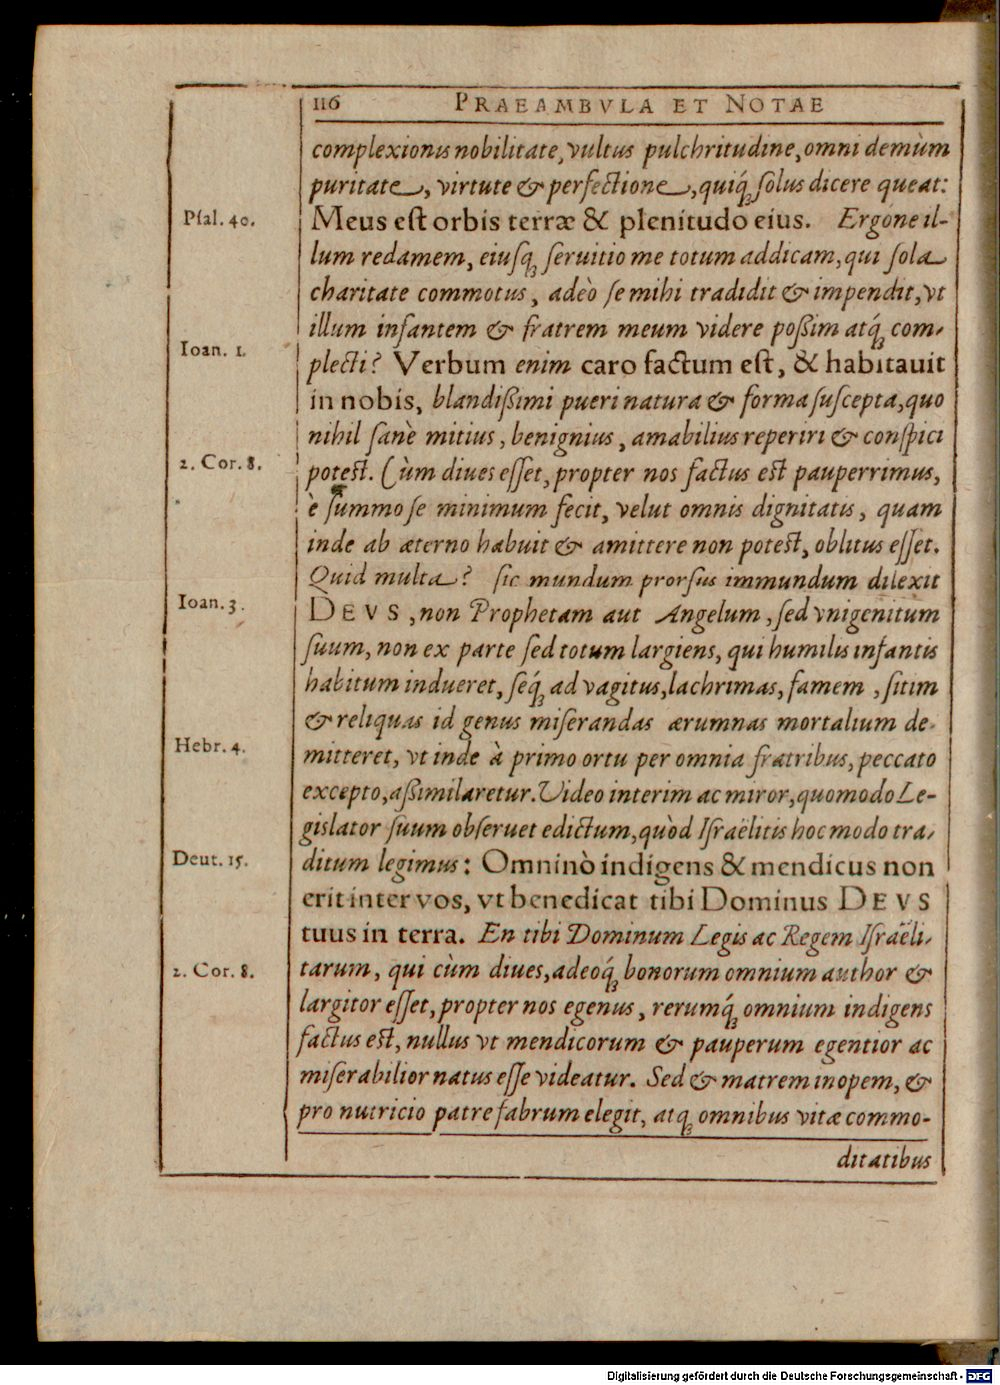 116 PRAEAMBVLA ET NOTAE
complexionis nobilitate, vultus pulchritudine, omni demùm
puritate, virtute & perfectione, quiq́ꝫ ſolus dicere queat:
Pſal. 40.
Meus eſt orbis terræ & plenitudo eius. Ergone il-
lum redamem, eiuſqꝫ ſeruitio me totum addicam, qui ſola
charitate commotus, adeò ſe mihi tradidit & impendit, vt
illum infantem & fratrem meum videre poßim atq́ꝫ com-
Ioan. 1.
plecti? Verbum enim caro factum eſt, & habitauit
in nobis, blandißimi pueri natura & forma ſuſcepta, quo
nihil ſanè mitius, benignius, amabilius reperiri & conſpici
2. Cor. 8.
poteſt. Cùm diues eſſet, propter nos factus eſt pauperrimus,
è ſummo ſe minimum fecit, velut omnis dignitatis, quam
inde ab æterno habuit & amittere non poteſt, oblitus eſſet.
Quid multa? ſic mundum prorſus immundum dilexit
Ioan. 3.
DEVS, non Prophetam aut Angelum, ſed vnigenitum
ſuum, non ex parte ſed totum largiens, qui humilis infantis
habitum indueret, ſeq́ꝫ ad vagitus, lachrimas, famem, ſitim
& reliquas id genus miſerandas ærumnas mortalium de-
Hebr. 4.
mitteret, vt inde à primo ortu per omnia fratribus, peccato
excepto, aßimilaretur. Video interim ac miror, quomodo Le-
gislator ſuum obſeruet edictum, quòd Iſraëlitis hoc modo tra-
Deut. 15.
ditum legimus: Omninò indigens & mendicus non
erit inter vos, vt benedicat tibi Dominus DEVS
tuus in terra. En tibi Dominum Legis ac Regem Iſraëli-
2. Cor. 8.
tarum, qui cùm diues, adeoq́ꝫ bonorum omnium author &
largitor eſſet, propter nos egenus, rerumq́ꝫ omnium indigens
factus eſt, nullus vt mendicorum & pauperum egentior ac
miſerabilior natus eſſe videatur. Sed & matrem inopem, &
pro nutricio patre fabrum elegit, atqꝫ omnibus vitæ commo-
ditatibus
Digitalisierung gefördert durch die Deutsche Forschungsgemeinschaft - DFG